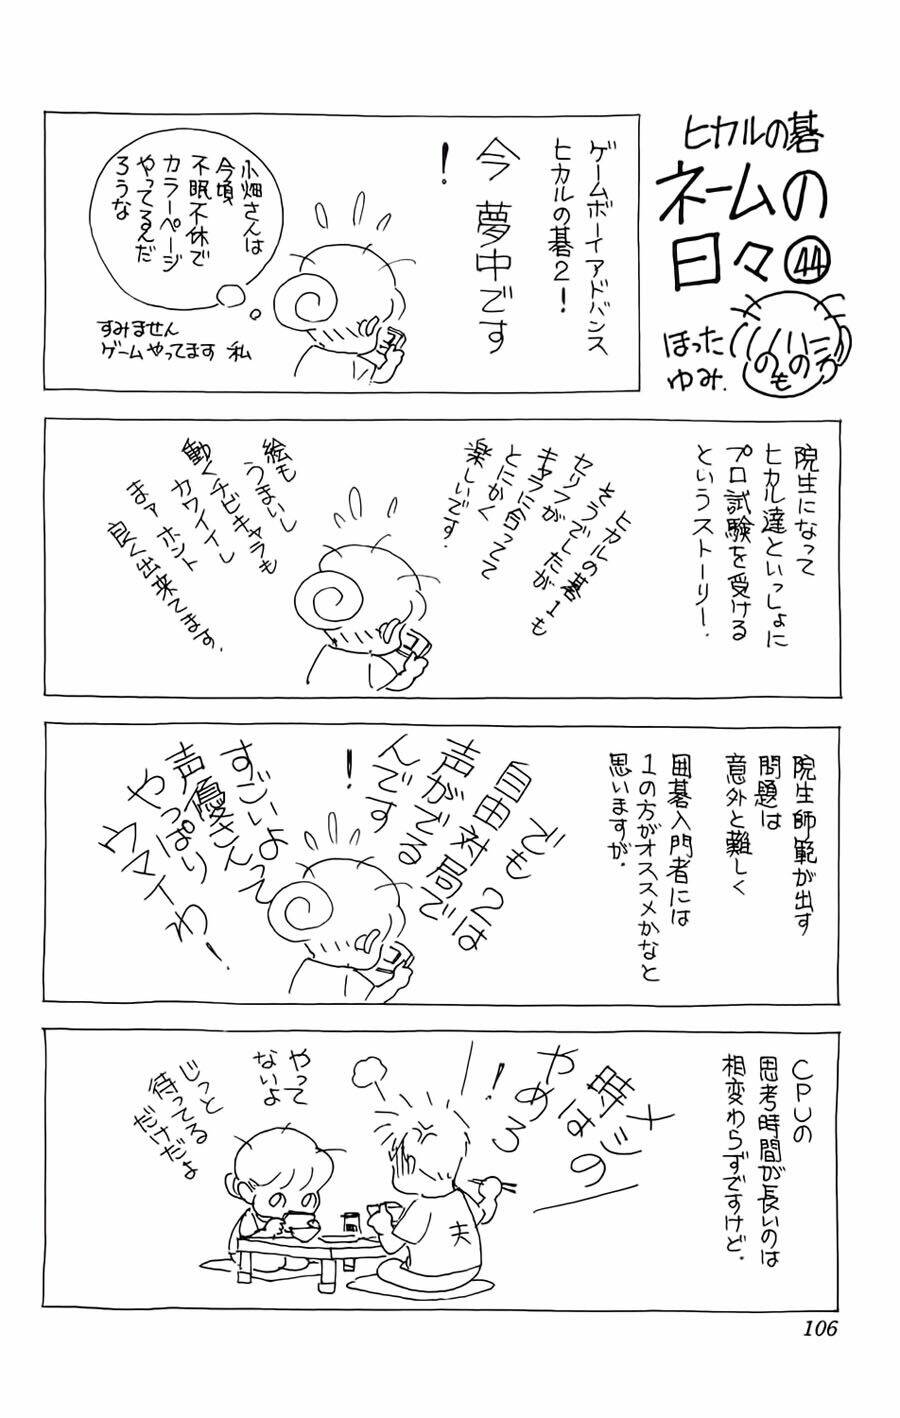 ヒカルの碁
ネームの
日々㊹
ほった
ゆみ.
ゲームボーイアドバンス
ヒカルの碁2！
今 夢中です
！
小畑さんは
今頃
不眠不休で
カラーページ
やってるんだ
ろうな
すみません
ゲームやってます 私
院生になって
ヒカル達といっしょに
プロ試験を受ける
というストーリー.
ヒカルの碁1も
そうでしたが
セリフが
キャラに合ってて
とにかく
楽しいです.
絵も
うまいし
動くチビキャラも
カワイイし
まァ ホント
良く出来てます.
院生師範が出す
問題は
意外と難しく
囲碁入門者には
1の方がオススメかなと
思いますが.
でも2は
自由対局で
声がでる
んです
！
すごいよって
声優さん
やっぱり
ウマイわ！
CPUの
思考時間が長いのは
相変わらずですけど.
メシの
時は
やめろ
！
やって
ないよ
じっと
待ってる
だけだよ
夫
106